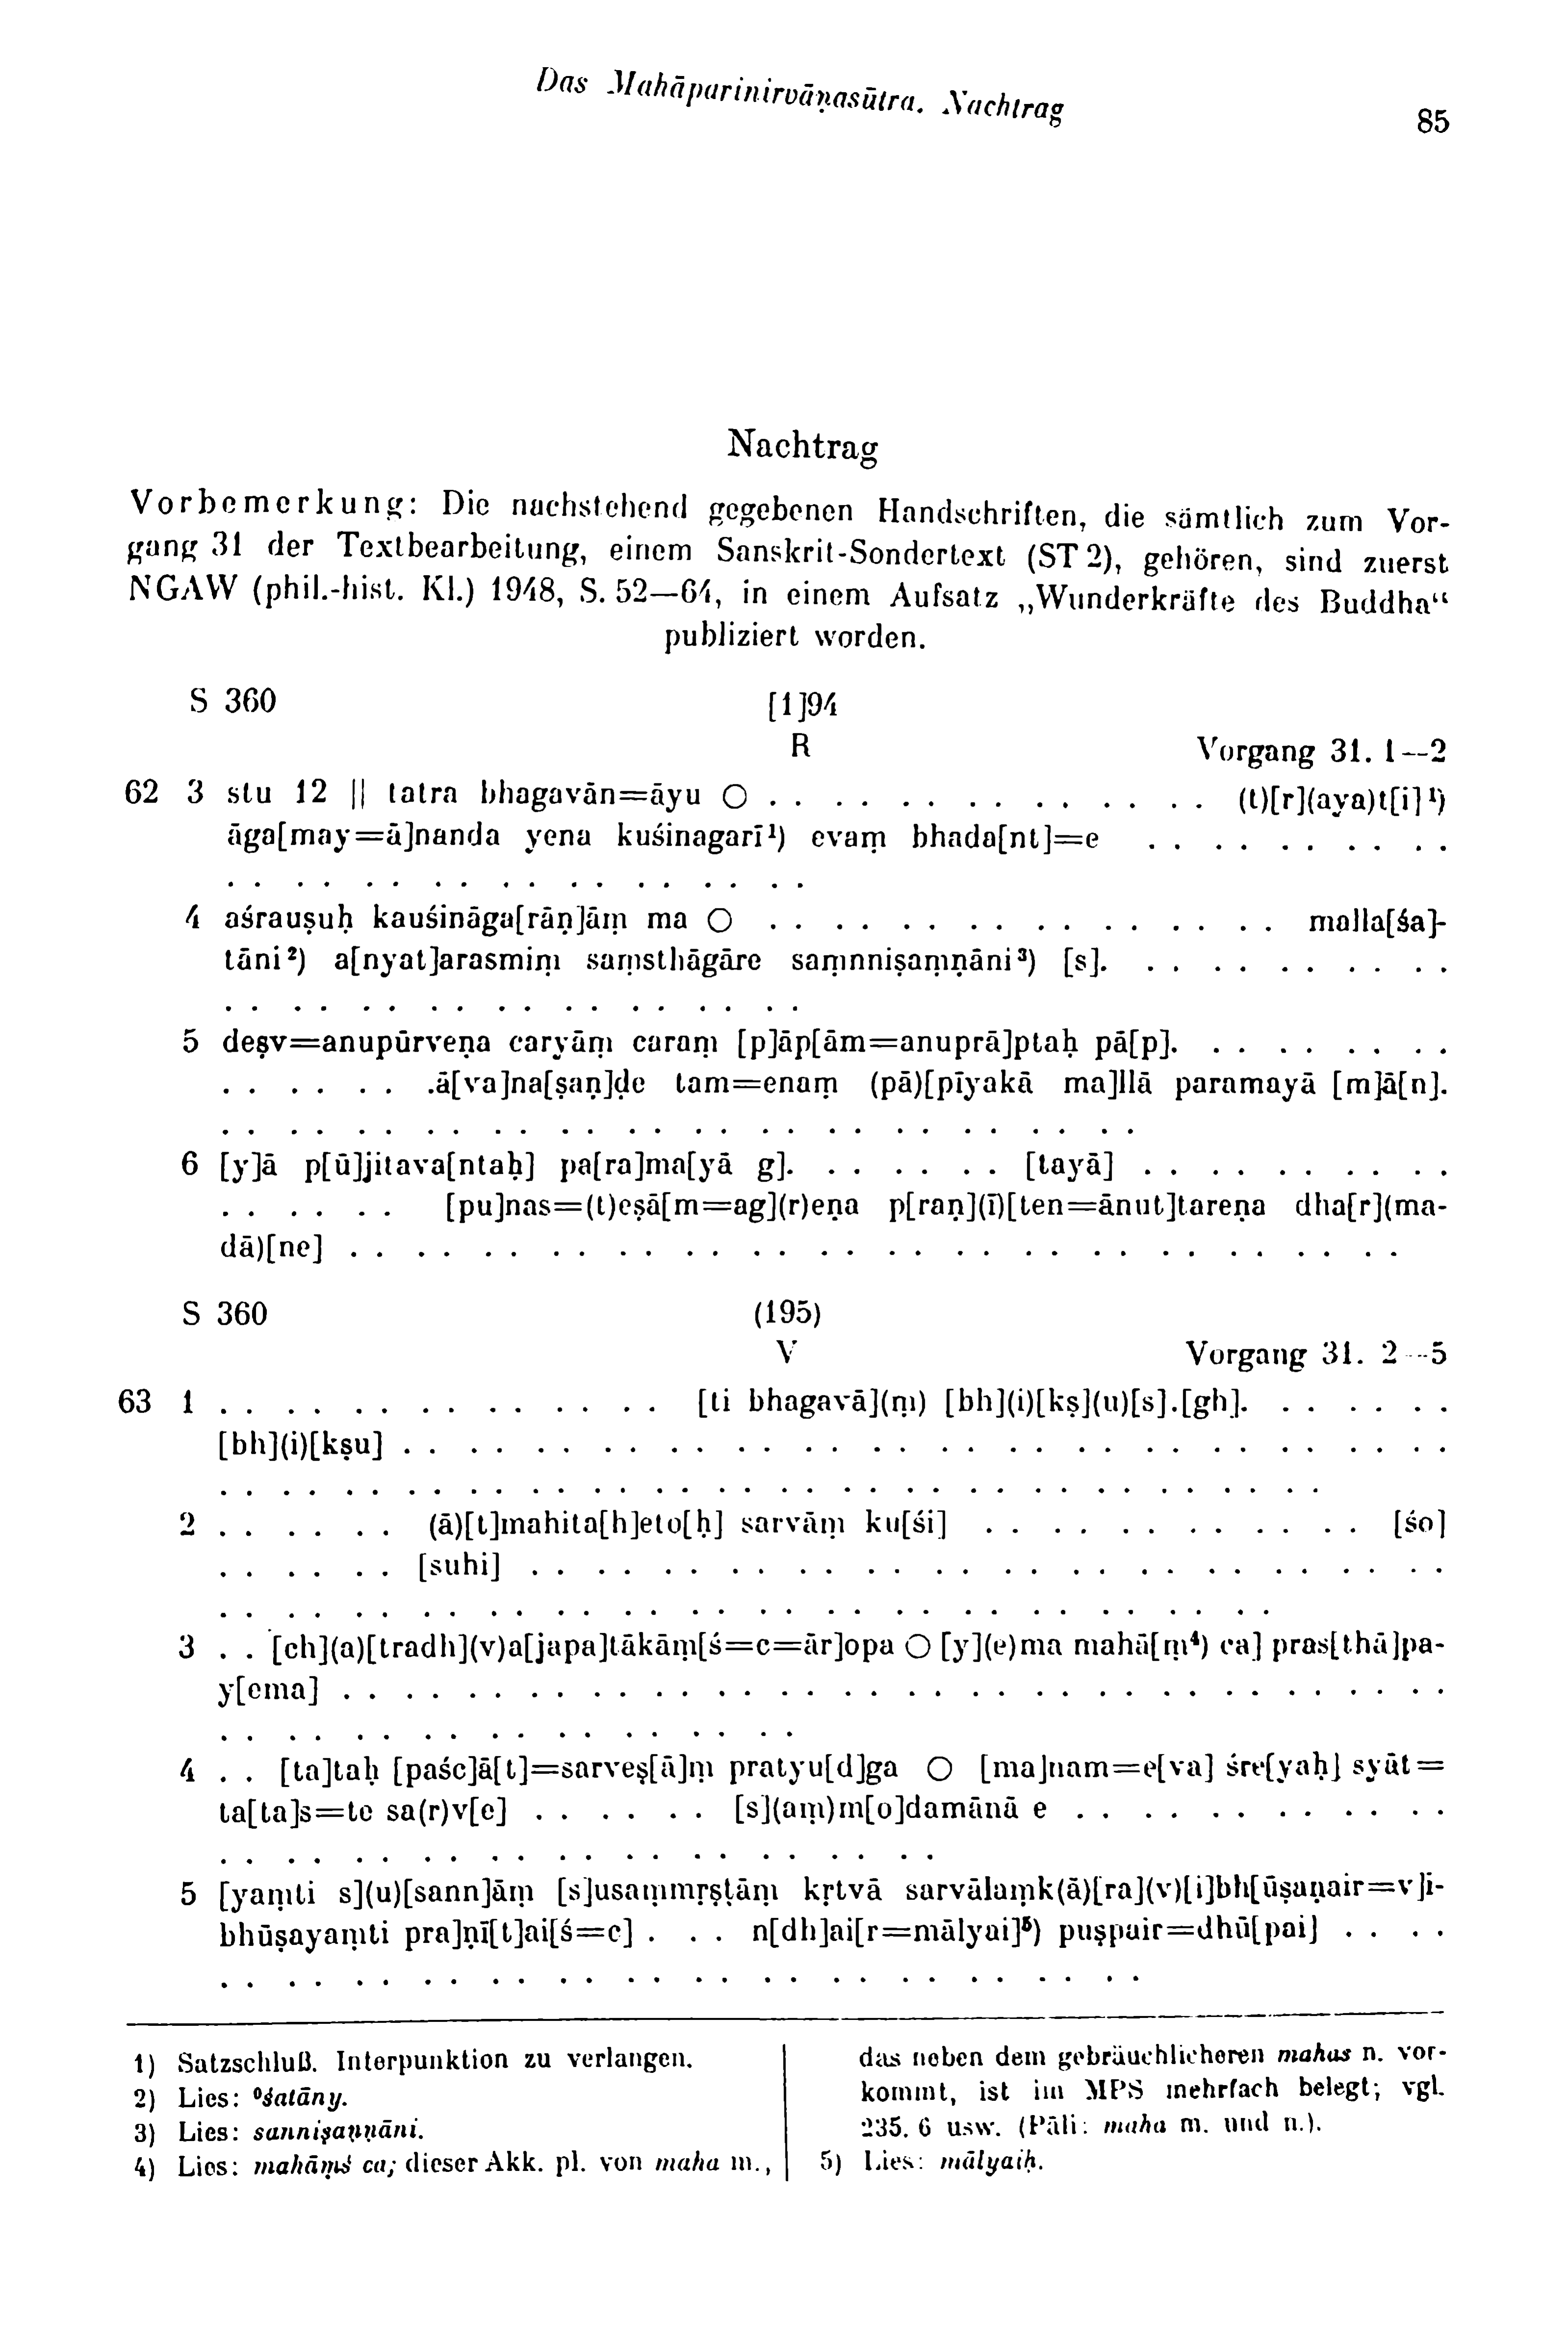 Das Mahāparinirvāṇasūtra. Nachtrag
85
Nachtrag
Vorbemerkung: Die nachstehend gegebenen Handschriften, die sämtlich zum Vor-
gang 31 der Textbearbeitung, einem Sanskrit-Sondertext (ST 2), gehören, sind zuerst
NGAW (phil.-hist. Kl.) 1948, S. 52—64, in einem Aufsatz „Wunderkräfte des Buddha“
publiziert worden.
S 360 [1]94
R Vorgang 31. 1—2
62 3 stu 12 || tatra bhagavān=āyu ○ . . . . . . . . . . . . . . (t)[r](aya)t[i]¹)
āga[may=ā]nanda yena kuśinagarī¹) evaṃ bhada[nt]=e . . . . . . . . . .
. . . . . . . . . . . . . . . . . .
4 aśrauṣuḥ kauśināga[rāṇ]āṃ ma ○ . . . . . . . . . . . . . . . . malla[śa]-
tāni²) a[nyat]arasmiṃ saṃsthāgāre saṃnniṣaṃṇāni³) [s]. . . . . . . . . . .
. . . . . . . . . . . . . . . . . .
5 deṣv=anupūrveṇa caryāṃ caraṃ [p]āp[ām=anuprā]ptaḥ pā[p]. . . . . . . . .
. . . . . . .ā[va]na[ṣaṇ]ḍe tam=enaṃ (pā)[pīyakā ma]llā paramayā [m]ā[n].
. . . . . . . . . . . . . . . . . . . . . . . . . . . .
6 [y]ā p[ū]jitava[ntaḥ] pa[ra]ma[yā g]. . . . . . . [tayā] . . . . . . . . . .
. . . . . . [pu]nas=(t)eṣā[m=ag](r)eṇa p[raṇ](ī)[ten=ānut]tareṇa dha[r](ma-
dā)[ne] . . . . . . . . . . . . . . . . . . . . . . . . . . . . . . . .
S 360 (195)
V Vorgang 31. 2—5
63 1 . . . . . . . . . . . . . . [ti bhagavā](ṃ) [bh](i)[kṣ](u)[s].[gh]. . . . . . .
[bh](i)[kṣu] . . . . . . . . . . . . . . . . . . . . . . . . . . . . . . . .
. . . . . . . . . . . . . . . . . . . . . . . . . . . . . . . . . . . .
2 . . . . . . (ā)[t]mahita[h]eto[ḥ] sarvāṃ ku[śi] . . . . . . . . . . . . [śo]
. . . . . . [suhi] . . . . . . . . . . . . . . . . . . . . . . . . . . . .
. . . . . . . . . . . . . . . . . . . . . . . . . . . . . . . .
3 . . [ch](a)[tradh](v)a[japa]tākāṃ[ś=c=ār]opa ○ [y](e)ma mahā[ṃ⁴) ca] pras[thā]pa-
y[ema] . . . . . . . . . . . . . . . . . . . . . . . . . . . . . . . . . .
. . . . . . . . . . . . . . . . . .
4 . . [ta]taḥ [paśc]ā[t]=sarveṣ[ā]ṃ pratyu[d]ga ○ [ma]nam=e[va] śre[yaḥ] syāt=
ta[ta]s=te sa(r)v[e] . . . . . . [s](aṃ)m[o]damānā e . . . . . . . . . . .
. . . . . . . . . . . . . . . . . . . . . .
5 [yaṃti s](u)[sann]āṃ [s]usaṃmṛṣṭāṃ kṛtvā sarvālaṃk(ā)[ra](v)[i]bh[ūṣaṇair=v]i-
bhūṣayaṃti pra]ṇī[t]ai[ś=c] . . . n[dh]ai[r=mālyai]⁵) puṣpair=dhū[pai] . . . .
. . . . . . . . . . . . . . . . . . . . . . . . . . . .
1) Satzschluß. Interpunktion zu verlangen.
2) Lies: °śatāny.
3) Lies: sanniṣaṇṇāni.
4) Lies: mahāṃś ca; dieser Akk. pl. von maha m.,
das neben dem gebräuchlicheren mahas n. vor-
kommt, ist im MPS mehrfach belegt; vgl.
235. 6 usw. (Pāli: maha m. und n.).
5) Lies: mālyaiḥ.